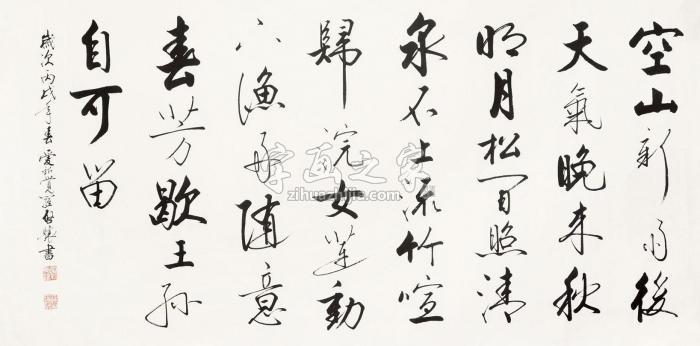 空山新雨後
天氣晚来秋
明月松间照清
泉石上流竹喧
歸浣女蓮動
下漁舟随意
春芳歇王孫
自可留
歲次丙戌年春愛新覺羅啟驤書
字画之家
zihuazhijia.com